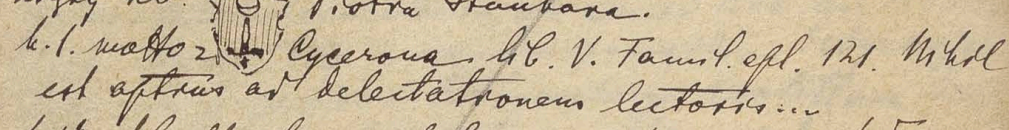 Piotra Stanbara.
k. 1. motto z Cycerona lib. V. Famil. epl. 121. Nihil
est aptius ad delectationem lectoris...